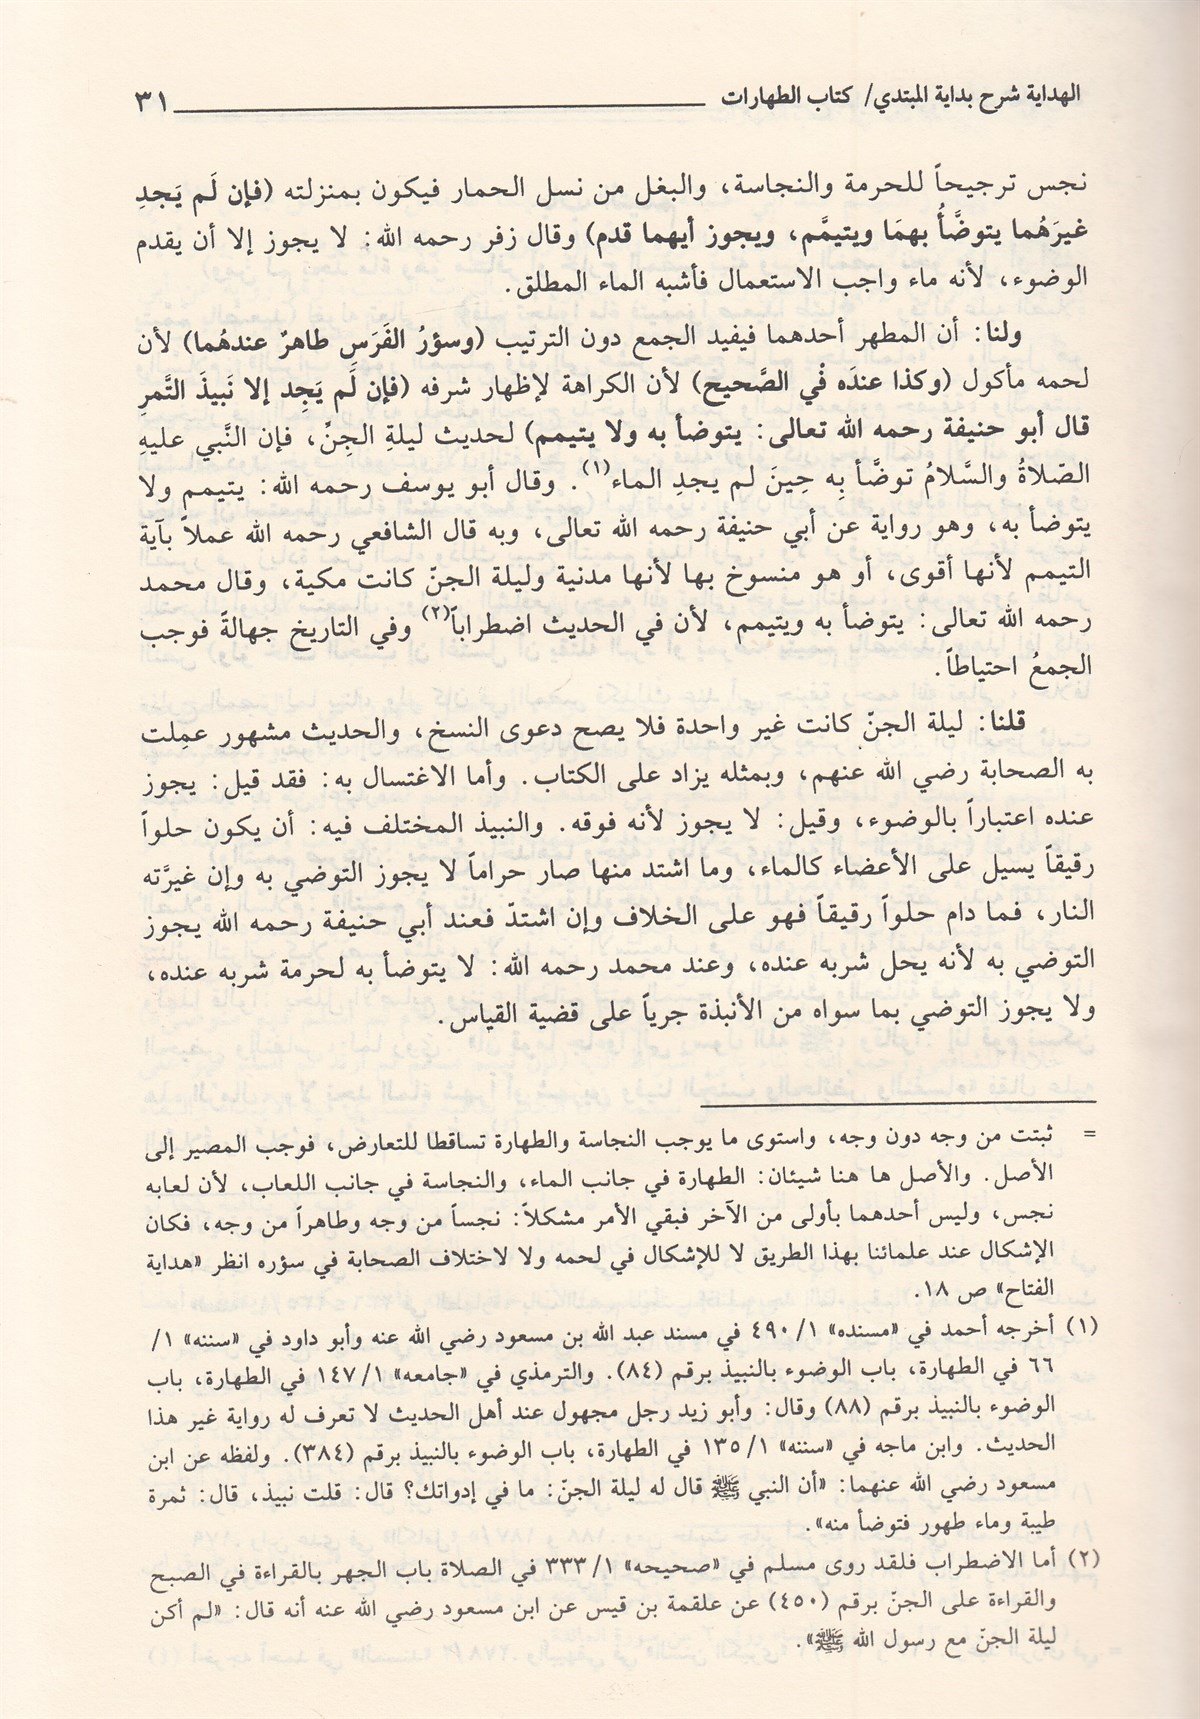 الهداية شرح بداية المبتدي/ كتاب الطهارات ٣١
نجس ترجيحاً للحرمة والنجاسة، والبغل من نسل الحمار فيكون بمنزلته (فإن لَم يَجدِ
غيرَهُما يتوضَّأُ بهمَا ويتيمَّم، ويجوز أيهما قدم) وقال زفر رحمه الله: لا يجوز إلا أن يقدم
الوضوء، لأنه ماء واجب الاستعمال فأشبه الماء المطلق.
ولنا: أن المطهر أحدهما فيفيد الجمع دون الترتيب (وسؤرُ الفَرَسِ طاهرٌ عندهُما) لأن
لحمه مأكول (وكذا عندَه فْي الصَّحيح) لأن الكراهة لإظهار شرفه (فإن لَم يَجِد إلا نَبيذَ التَّمرِ
قال أبو حنيفة رحمه الله تعالى: يتوضأ به ولا يتيمم) لحديث ليلةِ الجِنِّ، فإن النَّبي عليهِ
الصّلاةُ والسَّلامُ توضَّأ بِه حِينَ لم يجدِ الماء(١). وقال أبو يوسف رحمه الله: يتيمم ولا
يتوضأ به، وهو رواية عن أبي حنيفة رحمه الله تعالى، وبه قال الشافعي رحمه الله عملاً بآية
التيمم لأنها أقوى، أو هو منسوخ بها لأنها مدنية وليلة الجنّ كانت مكية، وقال محمد
رحمه الله تعالى: يتوضأ به ويتيمم، لأن في الحديث اضطراباً(٢) وفي التاريخ جهالةً فوجب
الجمعُ احتياطاً.
قلنا: ليلة الجنّ كانت غير واحدة فلا يصح دعوى النسخ، والحديث مشهور عمِلت
به الصحابة رضي الله عنهم، وبمثله يزاد على الكتاب. وأما الاغتسال به: فقد قيل: يجوز
عنده اعتباراً بالوضوء، وقيل: لا يجوز لأنه فوقه. والنبيذ المختلف فيه: أن يكون حلواً
رقيقاً يسيل على الأعضاء كالماء، وما اشتد منها صار حراماً لا يجوز التوضي به وإن غيرَّته
النار، فما دام حلواً رقيقاً فهو على الخلاف وإن اشتدّ فعند أبي حنيفة رحمه الله يجوز
التوضي به لأنه يحل شربه عنده، وعند محمد رحمه الله: لا يتوضأ به لحرمة شربه عنده،
ولا يجوز التوضي بما سواه من الأنبذة جرياً على قضية القياس.
= ثبتت من وجه دون وجه، واستوى ما يوجب النجاسة والطهارة تساقطا للتعارض، فوجب المصير إلى
الأصل. والأصل ها هنا شيئان: الطهارة في جانب الماء، والنجاسة في جانب اللعاب، لأن لعابه
نجس، وليس أحدهما بأولى من الآخر فبقي الأمر مشكلاً: نجساً من وجه وطاهراً من وجه، فكان
الإشكال عند علمائنا بهذا الطريق لا للإشكال في لحمه ولا لاختلاف الصحابة في سؤره انظر «هداية
الفتاح» ص ١٨.
(١) أخرجه أحمد في «مسنده» ١/ ٤٩٠ في مسند عبد الله بن مسعود رضي الله عنه وأبو داود في «سننه» ١/
٦٦ في الطهارة، باب الوضوء بالنبيذ برقم (٨٤). والترمذي في «جامعه» ١/ ١٤٧ في الطهارة، باب
الوضوء بالنبيذ برقم (٨٨) وقال: وأبو زيد رجل مجهول عند أهل الحديث لا تعرف له رواية غير هذا
الحديث. وابن ماجه في «سننه» ١/ ١٣٥ في الطهارة، باب الوضوء بالنبيذ برقم (٣٨٤). ولفظه عن ابن
مسعود رضي الله عنهما: «أن النبي ﷺ قال له ليلة الجنّ: ما في إدواتك؟ قال: قلت نبيذ، قال: ثمرة
طيبة وماء طهور فتوضأ منه».
(٢) أما الاضطراب فلقد روى مسلم في «صحيحه» ١/ ٣٣٣ في الصلاة باب الجهر بالقراءة في الصبح
والقراءة على الجنّ برقم (٤٥٠) عن علقمة بن قيس عن ابن مسعود رضي الله عنه أنه قال: «لم أكن
ليلة الجنّ مع رسول الله ﷺ».